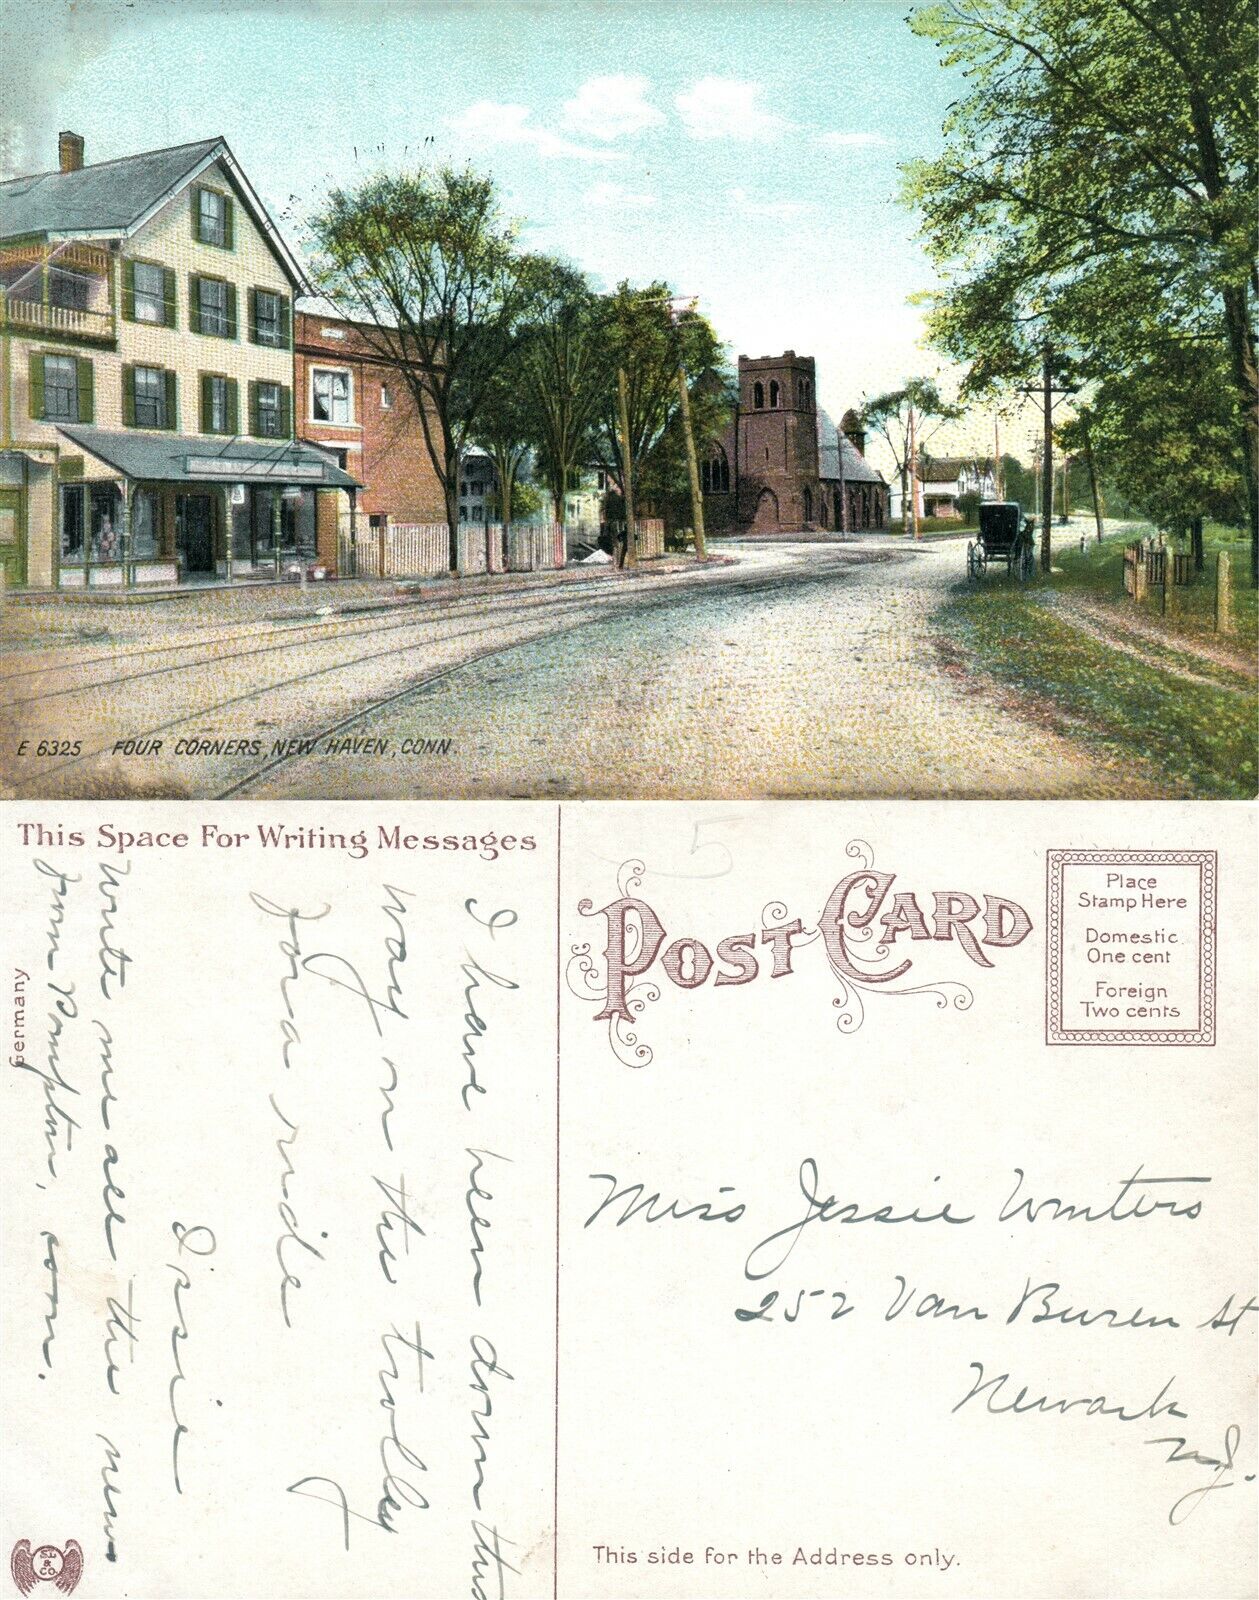 E 6325 FOUR CORNERS, NEW HAVEN, CONN.
This Space For Writing Messages
I have been down this
way on the trolley
for a ride
Issie
Write me all the news
from Pompton, conn.
Germany
S.L. & CO.
5
POST CARD
Place
Stamp Here
Domestic
One cent
Foreign
Two cents
Miss Jessie Winters
252 Van Buren St
Newark
N.J.
This side for the Address only.